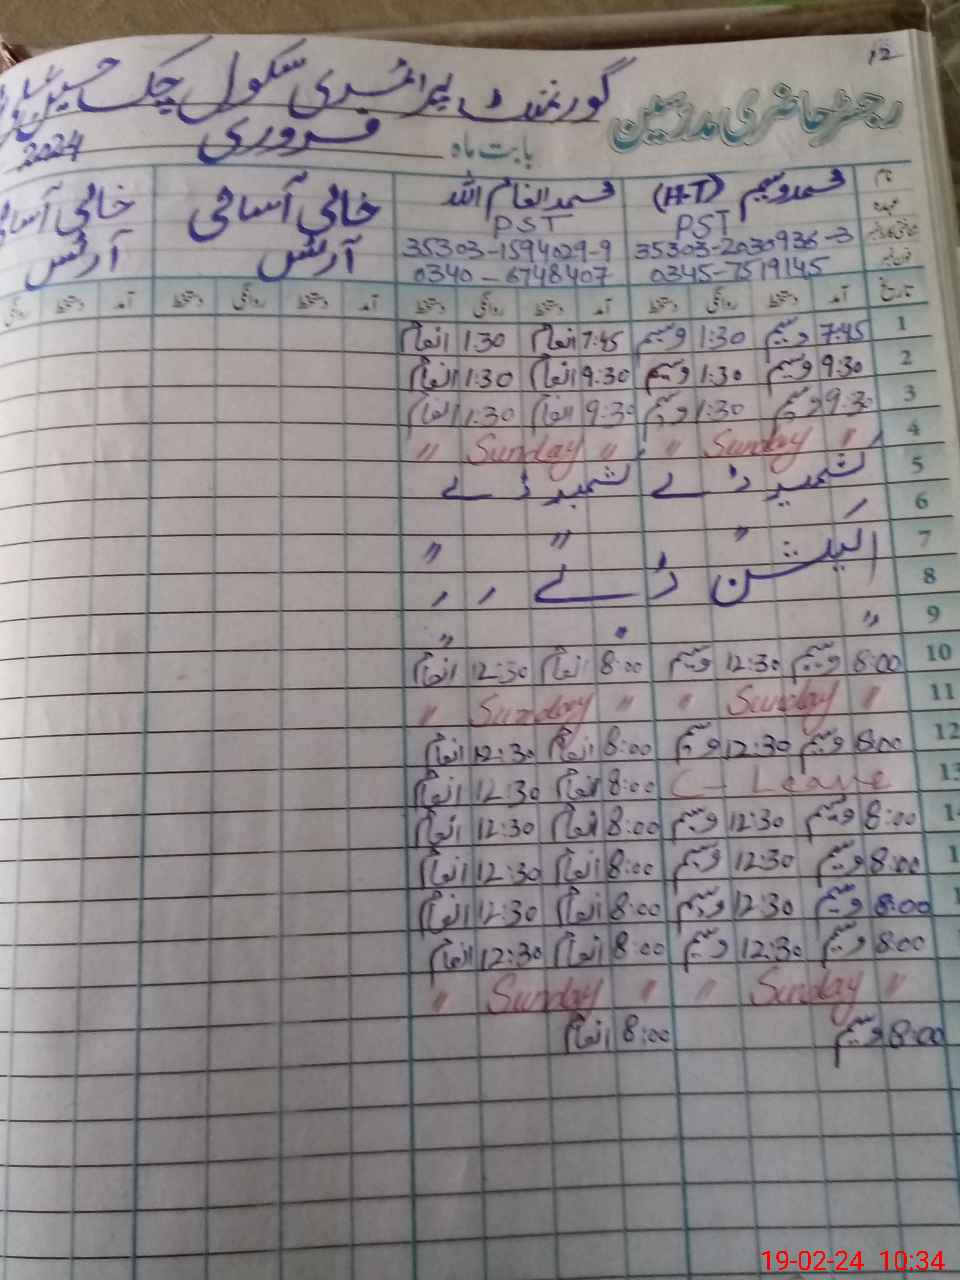 12
رجسٹر حاضری مدرسین گورنمنٹ پرائمری سکول چک
بابت ماہ فروری 2024
نام محمد وسیم (H-T) محمد انعام اللہ خالی آسامی خالی آسامی
عہدہ PST PST آرٹس آرٹس
35303-2030936-3 35303-1594029-9
0345-7519145 0340-6748407
تاریخ آمد دستخط روانگی دستخط آمد دستخط روانگی دستخط آمد دستخط روانگی دستخط آمد دستخط روانگی
1 7:45 وسیم 1:30 وسیم 7:45 انعام 1:30 انعام
2 9:30 وسیم 1:30 وسیم 9:30 انعام 1:30 انعام
3 9:30 وسیم 1:30 وسیم 9:30 انعام 1:30 انعام
4 " Sunday " " Sunday "
5 کشمیر ڈے کشمیر ڈے
6
7 " " "
8 الیکشن ڈے
9 " "
10 8:00 وسیم 12:30 وسیم 8:00 انعام 12:30 انعام
11 " Sunday " " Sunday "
12 8:00 وسیم 12:30 وسیم 8:00 انعام 12:30 انعام
13 C- Leave 8:00 انعام 12:30 انعام
8:00 وسیم 12:30 وسیم 8:00 انعام 12:30 انعام
8:00 وسیم 12:30 وسیم 8:00 انعام 12:30 انعام
8:00 وسیم 12:30 وسیم 8:00 انعام 12:30 انعام
8:00 وسیم 12:30 وسیم 8:00 انعام 12:30 انعام
" Sunday " " Sunday "
8:00 وسیم 8:00 انعام
19-02-24 10:34